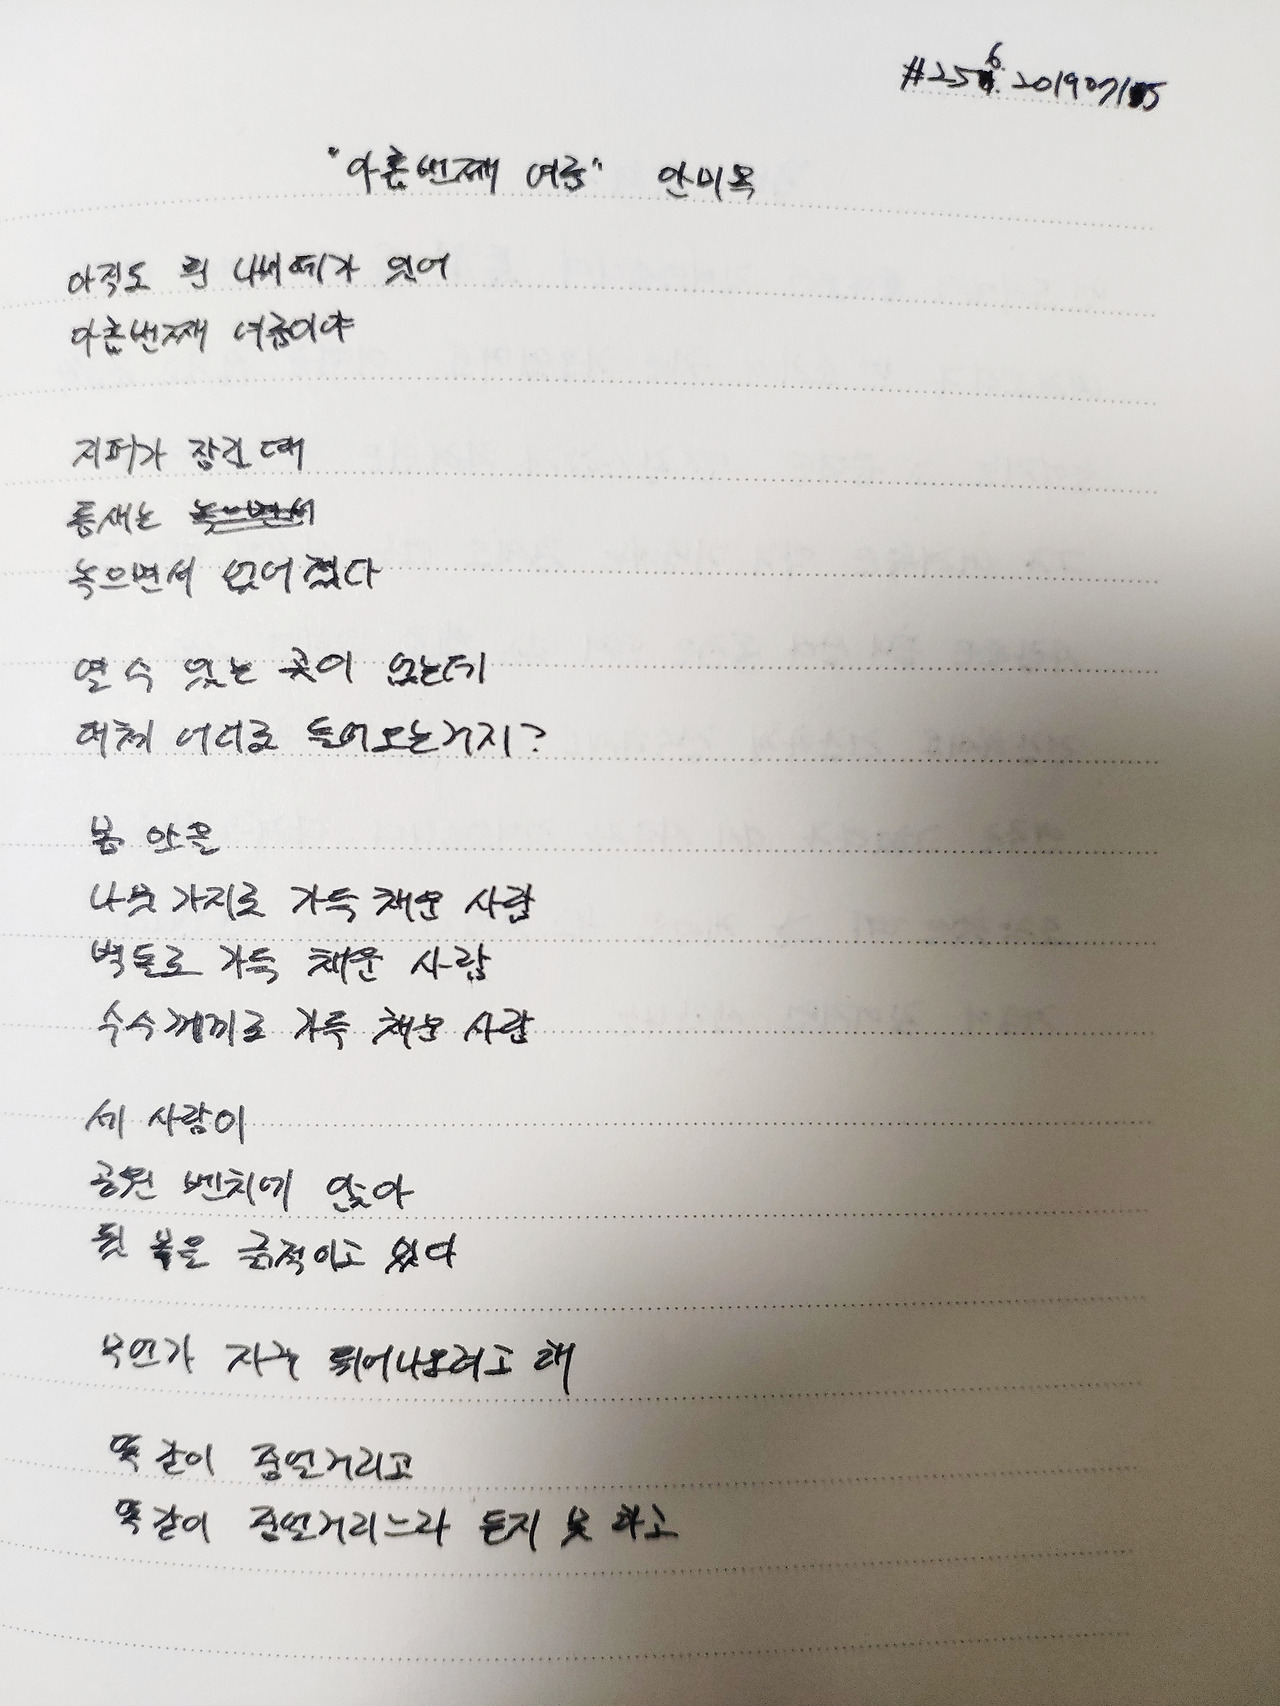 #256. 20190715
"아홉번째 여름" 안미옥
아직도 흰 나비떼가 있어
아홉번째 여름이야
지퍼가 잠긴 때
틈새는
녹으면서 없어졌다
열 수 있는 곳이 없는데
대체 어디로 들어오는거지?
몸 안을
나뭇가지로 가득 채운 사람
벽돌로 가득 채운 사람
수수께끼로 가득 채운 사람
세 사람이
공원 벤치에 앉아
뒷 목을 긁적이고 있다
무언가 자꾸 튀어나오려고 해
똑같이 중얼거리고
똑같이 중얼거리느라 듣지 못 하고